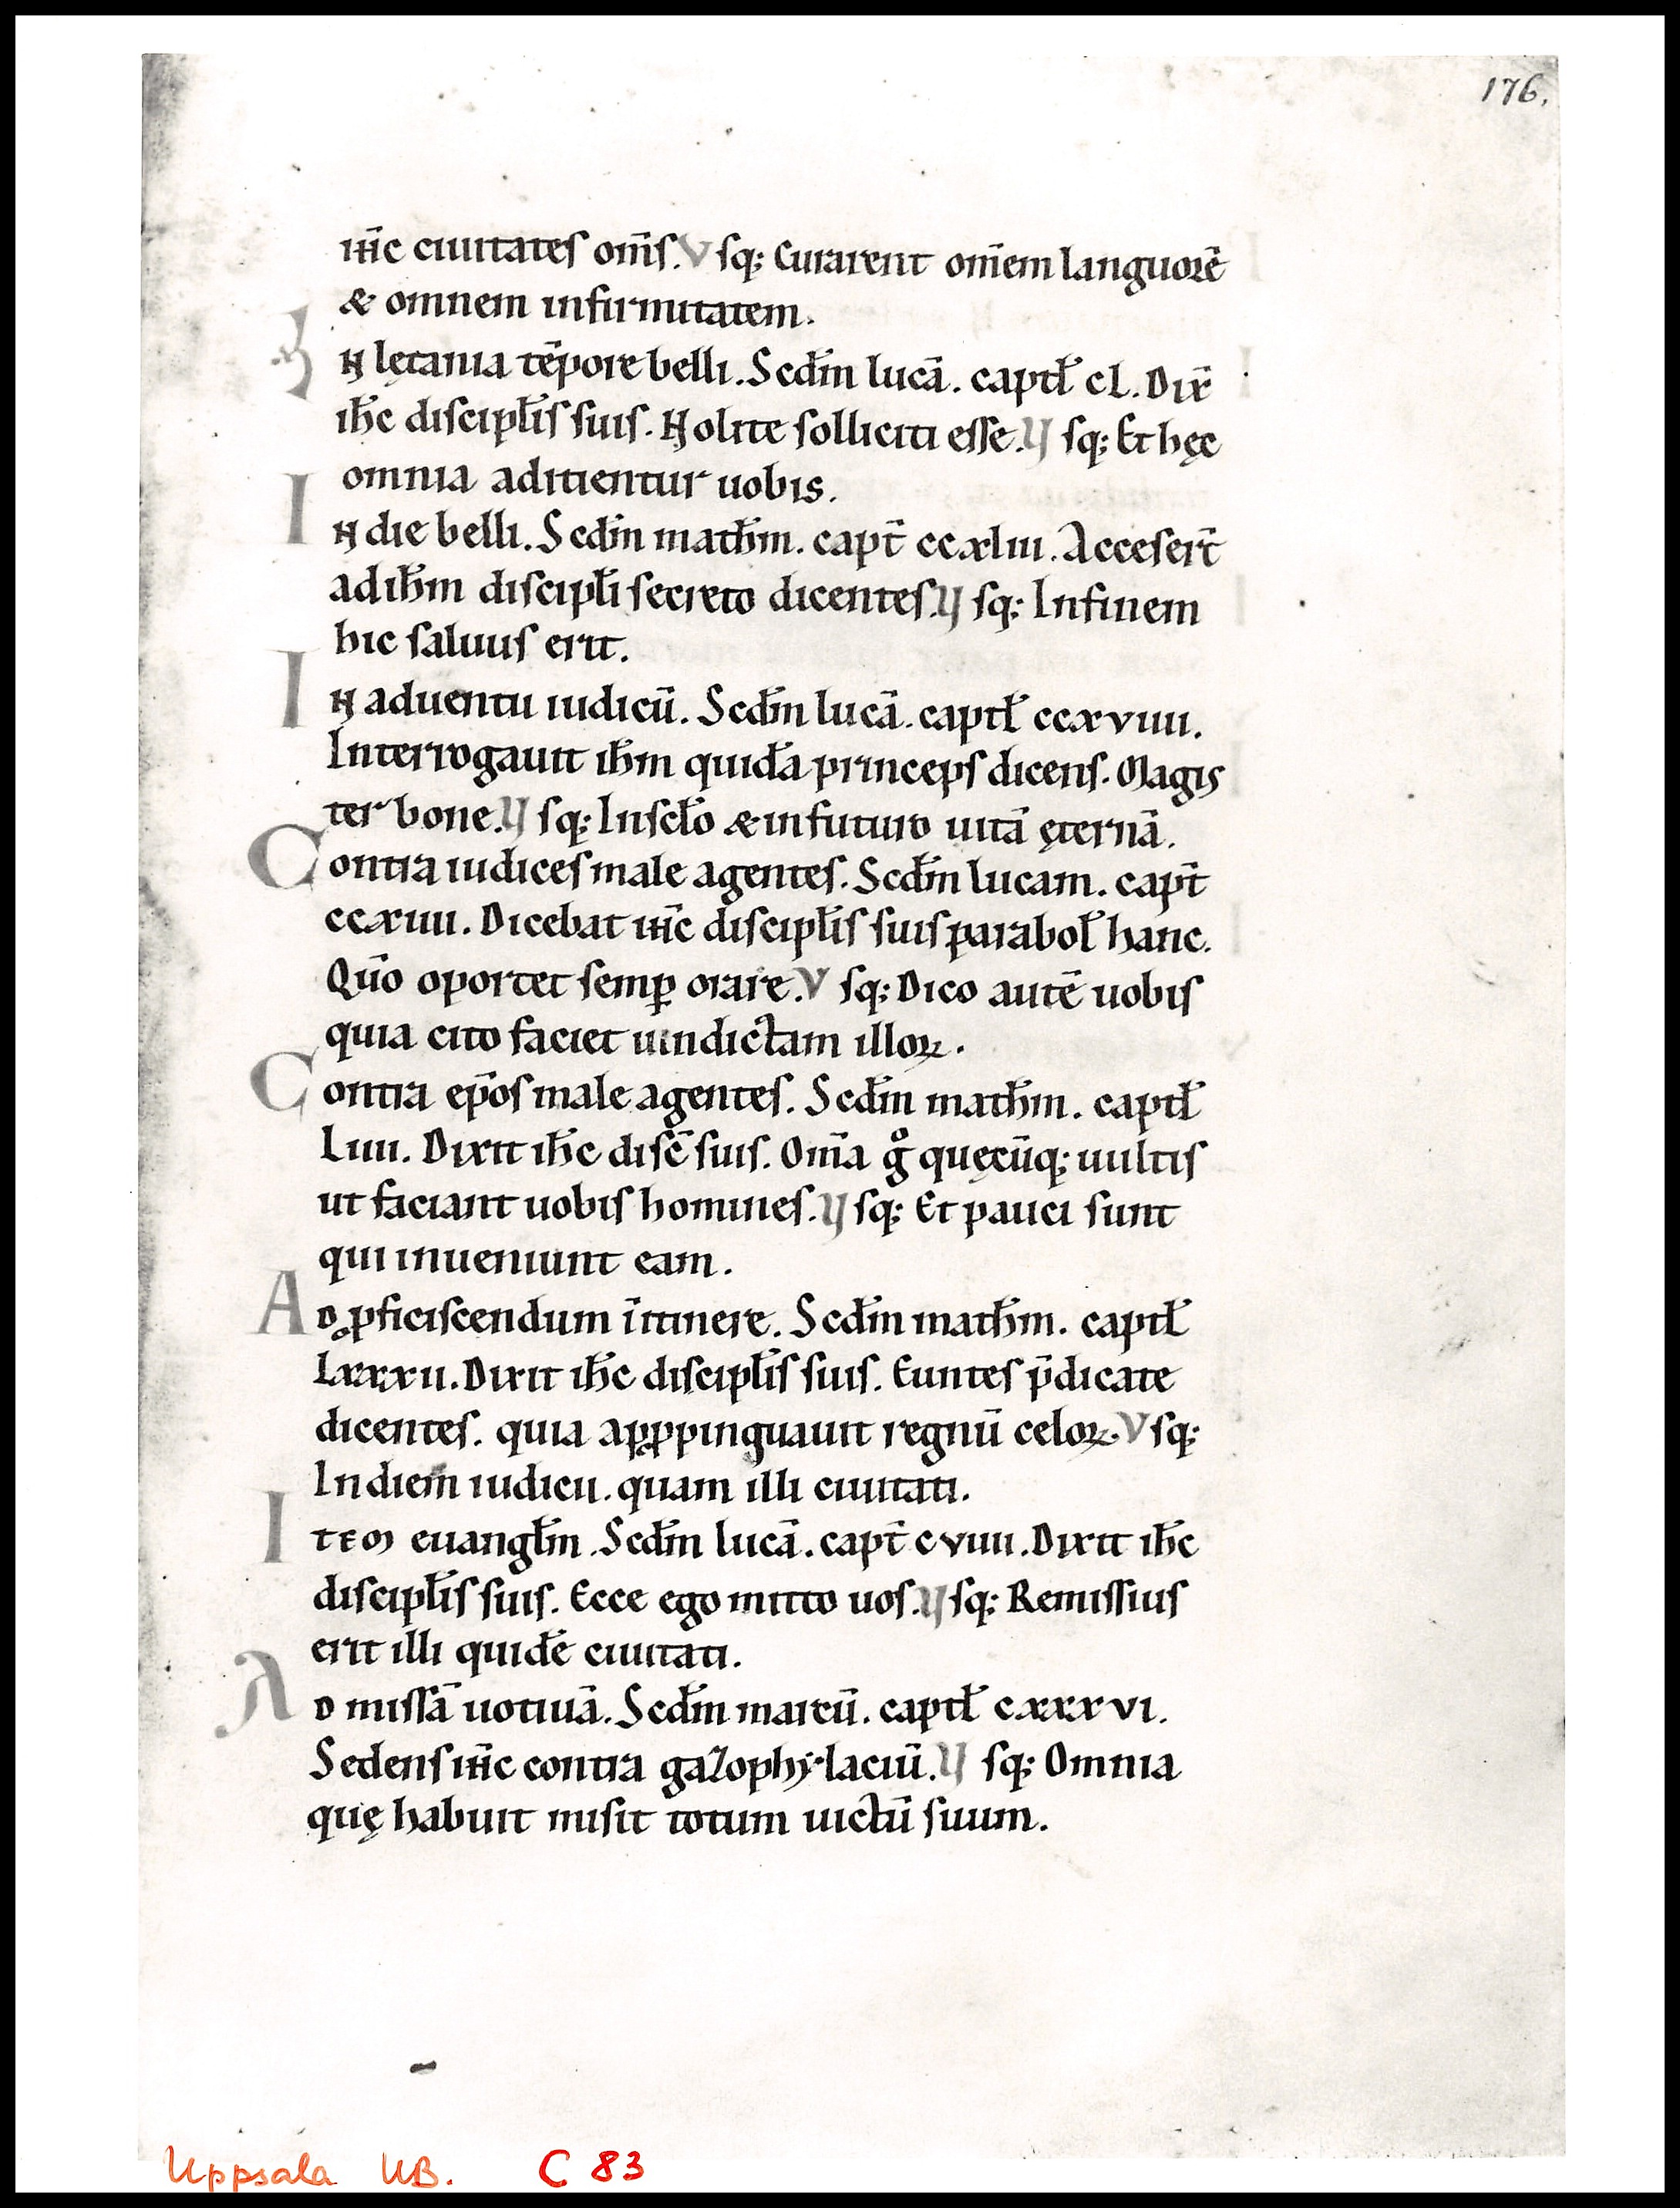 176.
ıħc ciuitates om̄s. Vsq; Curarent om̄em languorē
& omnem infirmitatem.
IN lętania tēpore belli. Scdm̄ lucā. captł cl. Dix̄
iħc discipłis suis. Nolite solliciti esse. Vsq; Et hęc
omnia aditientur uobis.
IN die belli. Scdm̄ mathm̄. capt̄ ccxliii. Accesert̄
ad iħm discipłi secreto dicentes. Vsq; In finem
hic saluus erit.
IN aduentu iudicū. Scdm̄ lucā. captł ccxviiii.
Interrogauit iħm quidā princeps dicens. Magis
ter bone. Vsq; In scło & in futuro uitā ęternā.
Contra iudices male agentes. Scdm̄ lucam. capt̄
ccxiiii. Dicebat iħc discipłis suis paraboł hanc.
Quō oportet semꝑ orare. Vsq; Dico autē uobis
quia cito faciet uindictam illoꝝ.
Contra ep̄os male agentes. Scdm̄ mathm̄. captł
Liiii. Dixit iħc disc̄ suis. Om̄a gͦ quęcūq; uultis
ut faciant uobis homines. Vsq; Et pauci sunt
qui inueniunt eam.
AD ꝓficiscendum itinere. Scdm̄ mathm̄. captł
Lxxxii. Dixit iħc discipłis suis. Euntes p̄dicate
dicentes. quia apꝓpinquauit regnū celoꝝ. Vsq;
In diem iudicii. quam illi ciuitati.
ITEM euangłm. Scdm̄ lucā. capt̄ cviiii. Dixit iħc
discipłis suis. Ecce ego mitto uos. Vsq; Remissius
erit illi quidē ciuitati.
AD missā uotiuā. Scdm̄ marcū. captł cxxxvi.
Sedens iħc contra gazophylaciū. Vsq; Omnia
quę habuit misit totum uictū suum.
Uppsala UB. C 83